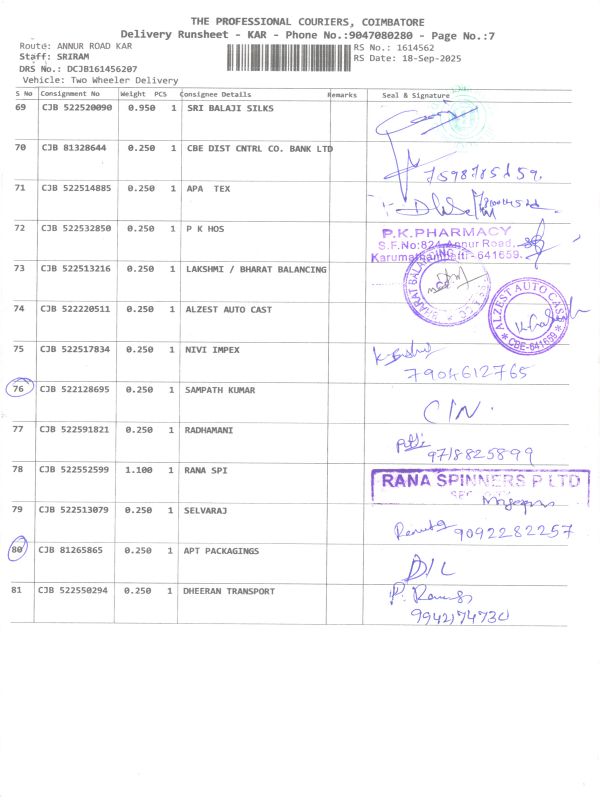 THE PROFESSIONAL COURIERS, COIMBATORE
Delivery Runsheet - KAR - Phone No.:9047080280 - Page No.:7
Route: ANNUR ROAD KAR RS No.: 1614562
Staff: SRIRAM RS Date: 18-Sep-2025
DRS No.: DCJB161456207
Vehicle: Two Wheeler Delivery
S No Consignment No Weight PCS Consignee Details Remarks Seal & Signature
69 CJB 522520090 0.950 1 SRI BALAJI SILKS
70 CJB 81328644 0.250 1 CBE DIST CNTRL CO. BANK LTD
71 CJB 522514885 0.250 1 APA TEX
72 CJB 522532850 0.250 1 P K HOS
P.K.PHARMACY
S.F.No:824, Annur Road,
Karumathampatti - 641659.
73 CJB 522513216 0.250 1 LAKSHMI / BHARAT BALANCING
BHARAT BALANCING
74 CJB 522220511 0.250 1 ALZEST AUTO CAST
ALZEST AUTO CAST
CBE-641659
75 CJB 522517834 0.250 1 NIVI IMPEX
7904612765
76 CJB 522128695 0.250 1 SAMPATH KUMAR
C/N.
77 CJB 522591821 0.250 1 RADHAMANI
9718825899
78 CJB 522552599 1.100 1 RANA SPI
RANA SPINNERS P LTD
79 CJB 522513079 0.250 1 SELVARAJ
9092282257
80 CJB 81265865 0.250 1 APT PACKAGINGS
D/L
81 CJB 522550294 0.250 1 DHEERAN TRANSPORT